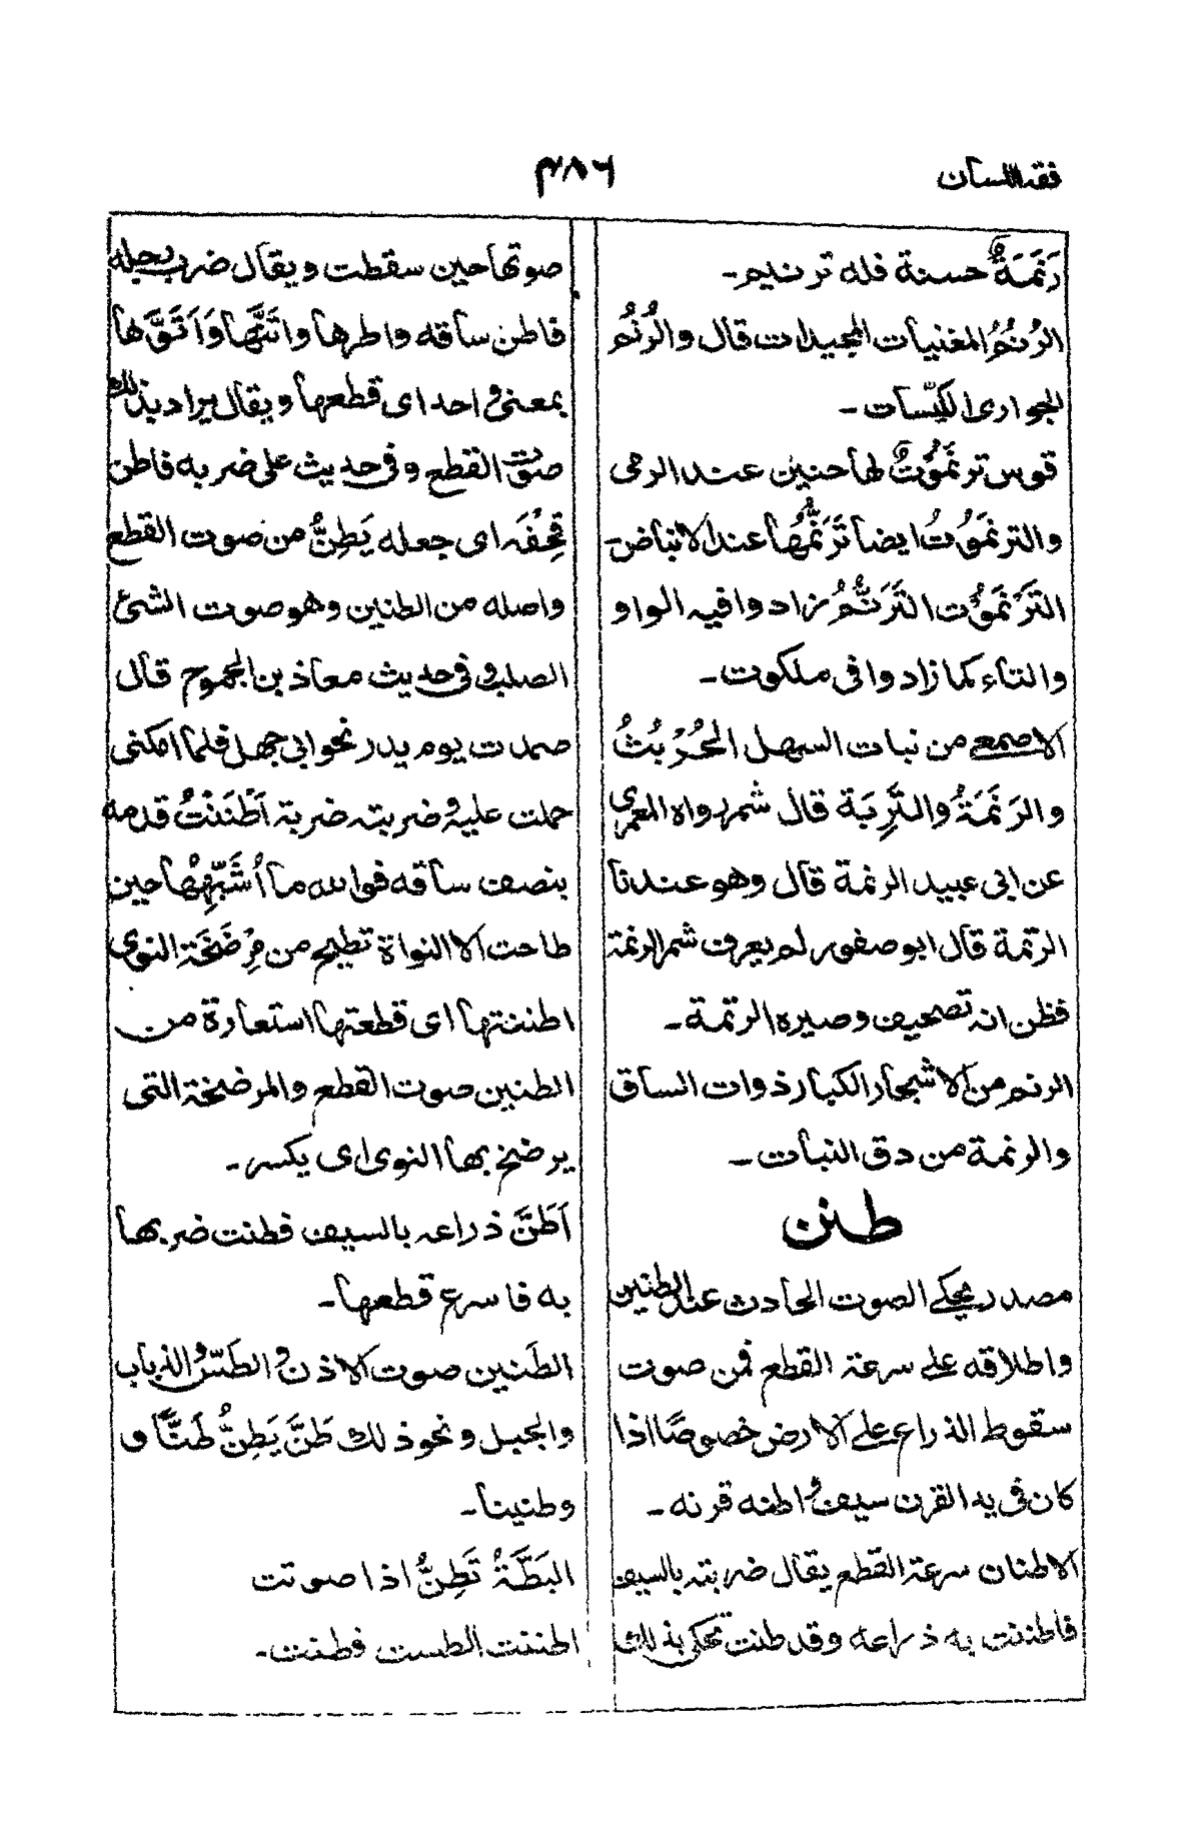 فقه اللسان
٣٨٦
رَنَمَةٌ حسنة فله ترنيم-
الرُّنُمُ المغنيات المجيدات قال والرُّنُمُ
الجواری الکیّسات-
قوس ترنَمُوْتٌ لها حنين عند الرمی
والترنَمُوْتُ ايضا تَرَنُّمُهَا عند الانباض-
التَرَنَمُوْت التَّرَنُّمُ زادوا فيه الواو
والتاء كما زادوا فی ملكوت-
الاصمعی من نبات السهل الحُرْبُثُ
والرَنَمَةُ والتَّرِبَة قال شمر رواه المعمری
عن ابی عبيد الرنمة قال وهو عندنا
الرتمة قال ابو صفور لم يعرف شمر الرنمة
فظن انه تصحيف وصيره الرتمة-
الرنم من الاشجار الكبار ذوات الساق
والرنمة من دق النبات-
طنن
مصدر يحكی الصوت الحادث عند الطنين
واطلاقه على سرعة القطع فمن صوت
سقوط الذراع على الارض خصوصًا اذا
كان فی يد القرن سيف و اطنه قرنه-
الاطنان سرعة القطع يقال ضربته بالسيف
فاطننت به ذراعه وقد طنت تحكی بذلك
صوتها حين سقطت ويقال ضرب رجله
فاطن ساقه واطرها واتنَّها وَاَتَرَّها
بمعنی واحد ای قطعها ويقال يراد بذلك
صوت القطع وفی حديث علی ضربه فاطن
قِحْفَه ای جعله يَطِنُّ من صوت القطع
واصله من الطنين وهو صوت الشئ
الصلب وفی حديث معاذ بن الجموح قال
صمدت يوم بدر نحو ابی جهل فلما امكننی
حملت عليه و ضربته ضربة اَطْنَنْتُ قدمه
بنصف ساقه فوالله ما اُشَبِّهُهَا حين
طاحت الا النواة تطيح من مِرْضَخَةِ النوی
اطننتها ای قطعتها استعارة من
الطنين صوت القطع والمرضخة التی
يرضخ بها النوی ای يكسر-
اَطَنَّ ذراعه بالسيف فطنت ضربها
به فاسرع قطعها-
الطَنين صوت الاذن و الطَسّ و الذباب
والجبل ونحو ذلك طَنَّ يَطِنُّ طَنًّا و
وطنينا-
البَطَّةُ تَطِنُّ اذا صوتت
اطننت الطست فطنت-